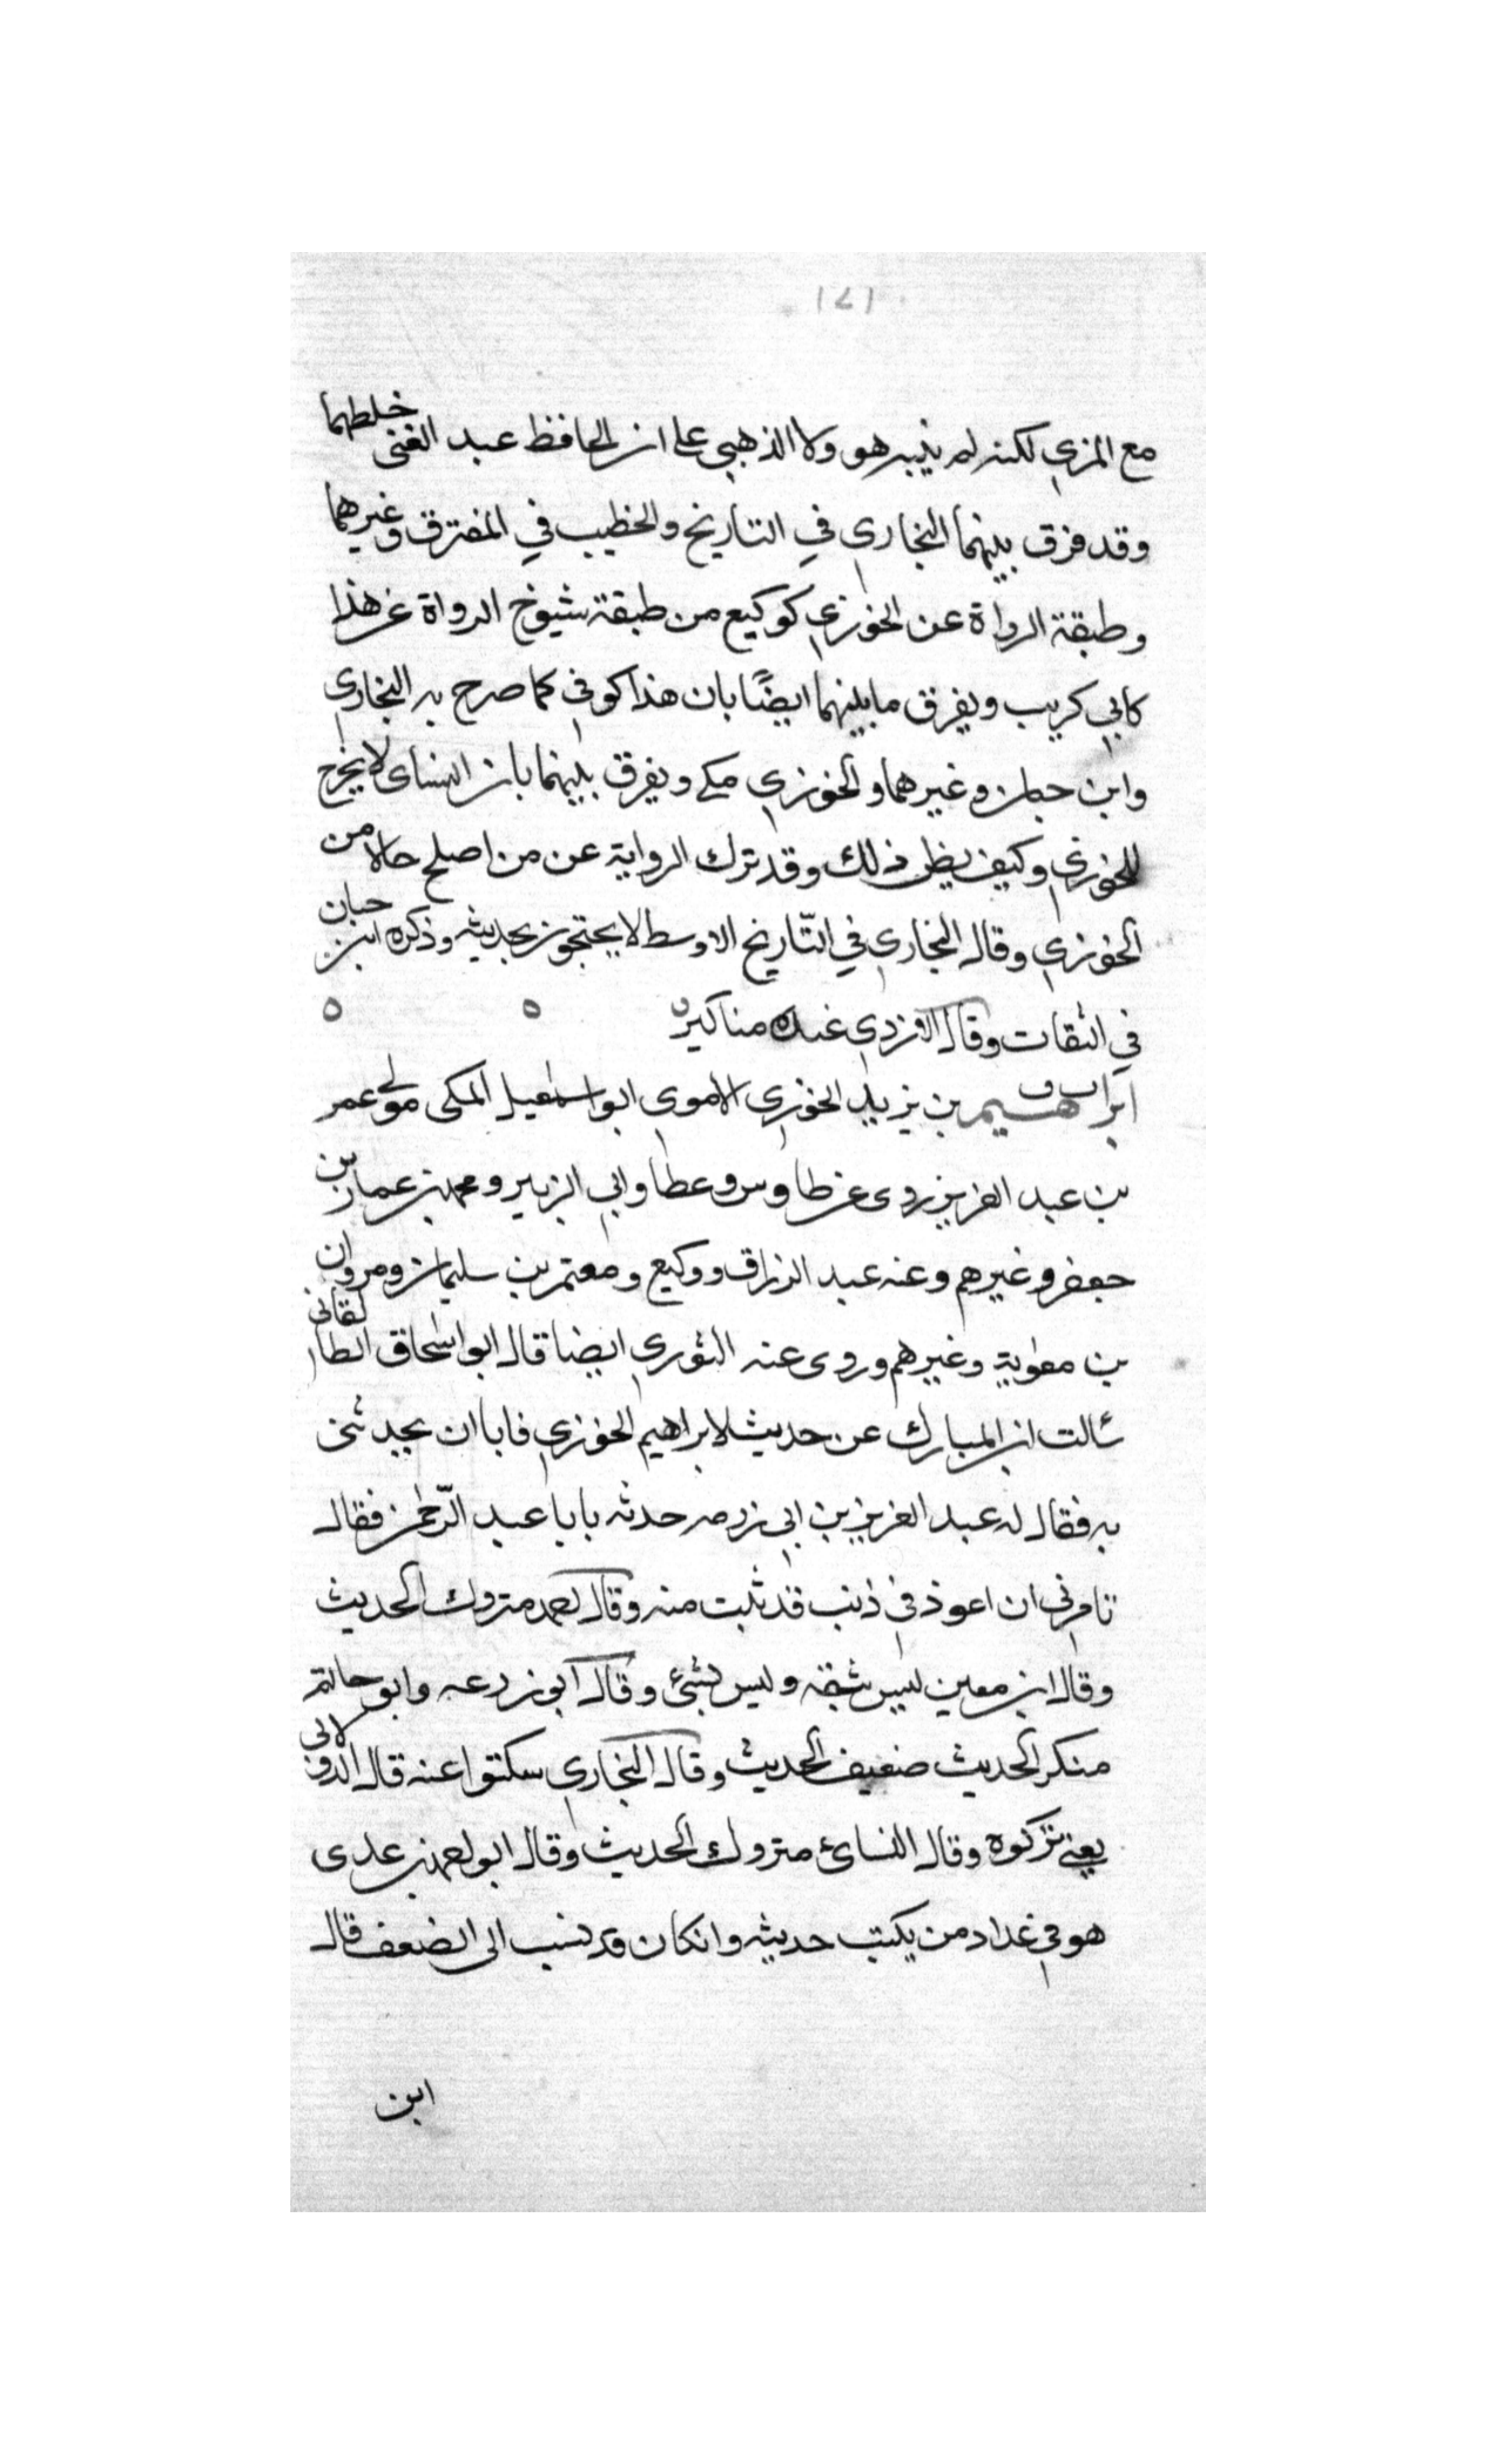 ١٧١
مع المزي لكنه لم ينبه هو ولا الذهبي على ان الحافظ عبد الغني خلطهما
وقد فرق بينهما البخاري في التاريخ والخطيب في المفترق وغيرهما
وطبقة الرواة عن الخوزي كوكيع من طبقة شيوخ الرواة عن هذا
كابي كريب ويفرق ما بينهما ايضًا بان هذا كوفي كما صرح به البخاري
وابن حبان وغيرهما والخوزي مكي ويفرق بينهما بان النساى لا يخرج
للخوزي وكيف يظن ذلك وقد ترك الرواية عن من اصلح حالا من
الخوزي وقال البخاري في التّاريخ الاوسط لا يحتجون بحديثه وذكره ابن حبان
في الثقات وقال الازدي عنده مناكير ه ه ه
ابراهيم بن يزيد الخوزي الاموي ابو اسمعيل المكى مولى عمر
بن عبد العزيز روى عن طاوس وعطا وابي الزبير ومحمد بن عباد بن
جعفر وغيرهم وعنه عبد الرزاق ووكيع ومعتمر بن سليمان ومروان
بن معوية وغيرهم وروى عنه الثوري ايضا قال ابو اسحاق الطالقاني
سالت ابن المبارك عن حديث لابراهيم الخوزي فابا ان يحدثني
به فقال له عبد العزيز بن ابي رزمه حدثه يابا عبد الرّحمن فقال
تامرني ان اعوذ في ذنب قد تبت منه وقال احمد متروك الحديث
وقال ابن معين ليس بثقة وليس بشئ وقال ابو زرعه وابو حاتم
منكر الحديث ضعيف الحديث وقال البخاري سكتوا عنه قال الدولابي
يعني تركوه وقال النسائ متروك الحديث وقال ابو احمد بن عدى
هو في عداد من يكتب حديثه وان كان قد نسب الى الضعف قال
ابن